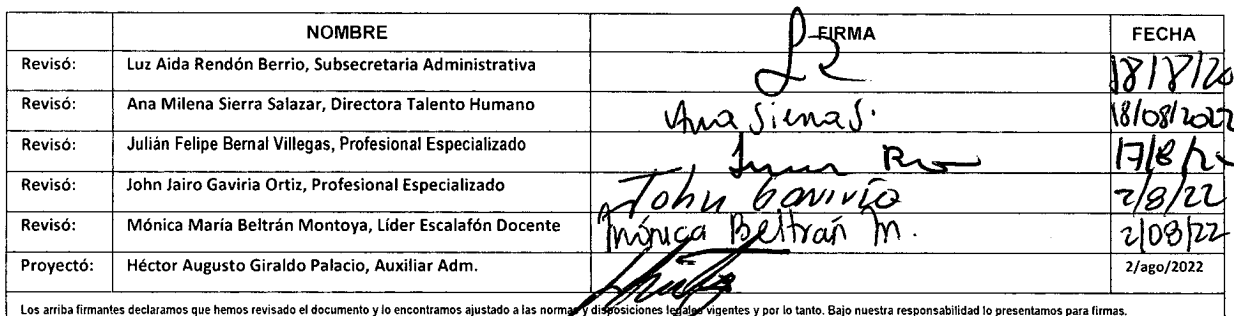 NOMBRE FIRMA FECHA
Revisó: Luz Aida Rendón Berrio, Subsecretaria Administrativa 18/8/20
Revisó: Ana Milena Sierra Salazar, Directora Talento Humano Ana Sierra S. 18/08/2022
Revisó: Julián Felipe Bernal Villegas, Profesional Especializado
Revisó: John Jairo Gaviria Ortiz, Profesional Especializado John Gaviria 2/8/22
Revisó: Mónica María Beltrán Montoya, Líder Escalafón Docente Mónica Beltrán M. 2/08/22
Proyectó: Héctor Augusto Giraldo Palacio, Auxiliar Adm. 2/ago/2022
Los arriba firmantes declaramos que hemos revisado el documento y lo encontramos ajustado a las normas y disposiciones legales vigentes y por lo tanto. Bajo nuestra responsabilidad lo presentamos para firmas.